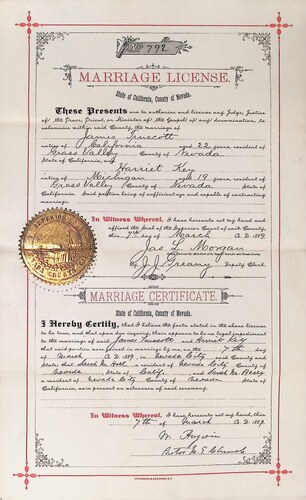 No 792
MARRIAGE LICENSE.
State of California, County of Nevada.
These Presents are to authorize and license any Judge, Justice
of the Peace, Priest, or Minister of the Gospel of any denomination, to
solemnize within said County, the marriage of
James Truscott
native of California aged 22 years, resident of
Grass Valley County of Nevada
State of California, and
Harriet Key
native of Michigan aged 19 years, resident of
Grass Valley County of Nevada
State of California. Said parties being of sufficient age and capable of contracting
marriage.
In Witness Whereof, I have hereunto set my hand and
affixed the Seal of the Superior Court of said County,
this 7th day of March A.D. 1889.
Jas L. Morgan
By J. J. Greany Deputy Clerk
MARRIAGE CERTIFICATE.
State of California, County of Nevada.
I Hereby Certify, that I believe the facts stated in the above license
to be true, and that upon due inquiry, there appears to be no legal impediment
to the marriage of said James Truscott and Harriet Key
that said parties were joined in marriage by me, on the 7th day of
March A.D. 1889, in Nevada City County and
State; that Sarah M. a resident of Nevada City County of
Nevada State of Calif. and Sarah M.
a resident of Nevada City County of Nevada State of
California, are present as witnesses of said ceremony.
In Witness Whereof, I have hereunto set my hand, this
7th of March A.D. 1889.
M.
Pastor M. E. Church